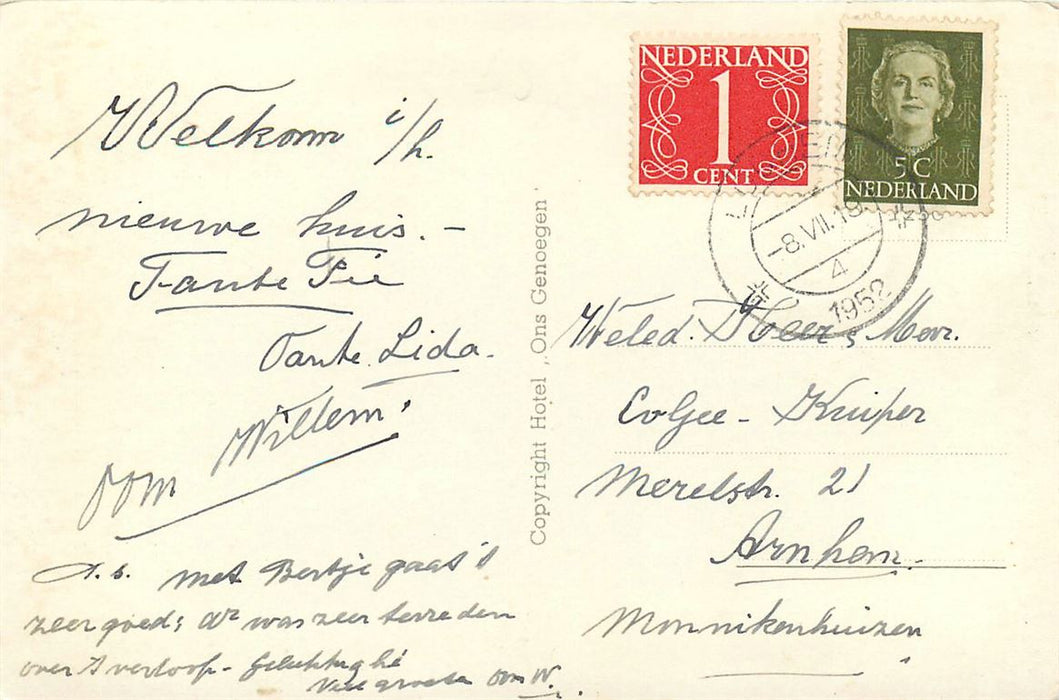 Welkom i/h.
nieuwe huis. -
Tante Fie
Tante Lida.
oom Willem.
P.S. Met Bertje gaat 't
zeer goed; dr was zeer tevreden
over 't verloop - Gelukkig hè
Vele groeten Oom W.
Copyright Hotel „Ons Genoegen"
NEDERLAND
1
CENT
5 C
NEDERLAND
-8.VII.19
4
1952
Weled. Heer & Mevr.
Kuiper
Merelstr. 21
Arnhem.
Monnikenhuizen